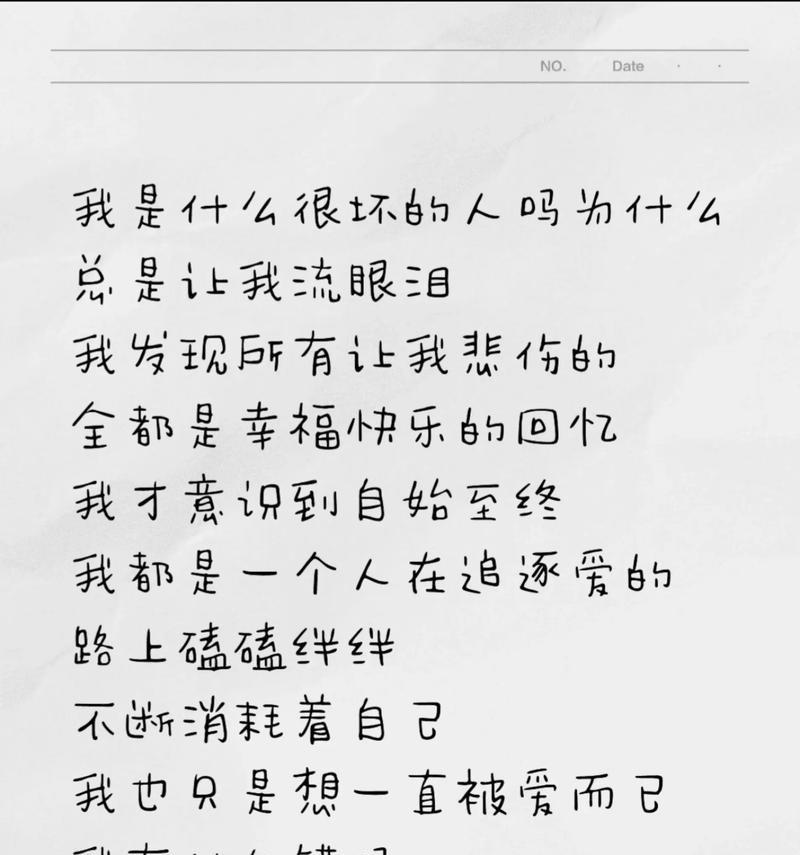 NO. Date · ·
我是什么很坏的人吗为什么
总是让我流眼泪
我发现所有让我悲伤的
全都是幸福快乐的回忆
我才意识到自始至终
我都是一个人在追逐爱的
路上磕磕绊绊
不断消耗着自己
我也只是想一直被爱而已